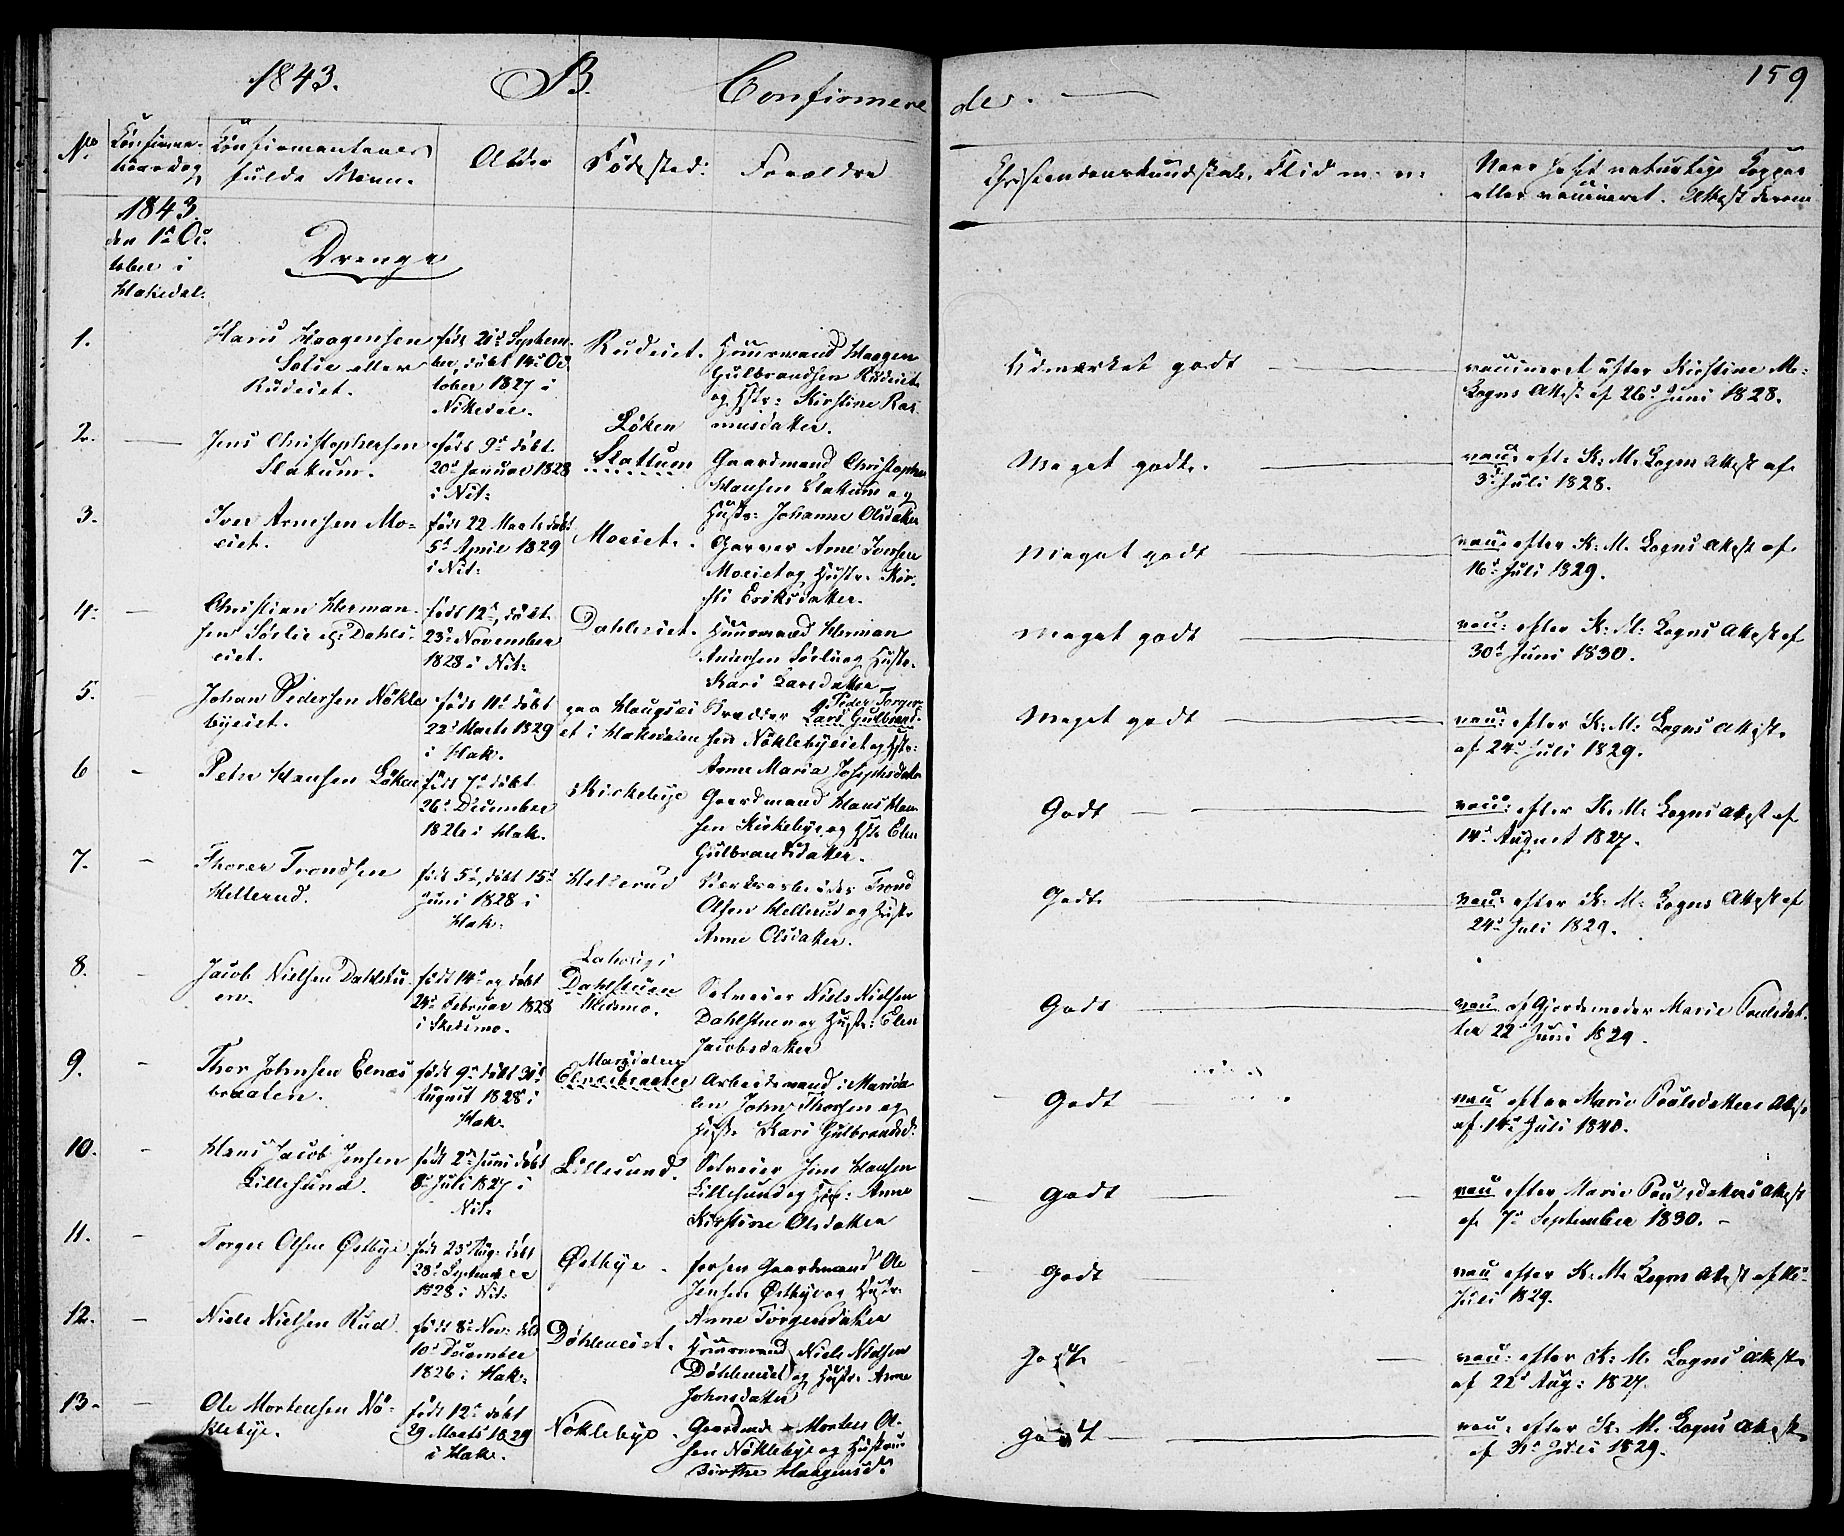 1843. B. Confirmere
des. 159
No Confirma-
tionsdag
Confirmanternes
fulde Navn.
Alder
Födested:
Forældre
Christendomskundskab, Flid m. v:
Naar havt naturlige Kopper
eller vaccineret. Attest derom
1843.
den 1ste Oc
tober i
Hakedal.
Drenge
1.
Hans Haagensen
Sotie eller
Rudeiet.
födt 21de Septem-
ber, döbt 14de Oc
tober 1827 i
Nittedal.
Rudeiet.
Huusmand Haagen
Gulbrandsen Rudeiet
og Hstr: Kirstine Ras-
musdatter.
Udmærket godt
vaccineret efter Kirstine M.
Bogns Attest af 26de Juni 1828.
2. Jens Christophersen
Slatum.
födt 9de döbt
20de Januar 1828
i Nit:
Løken
Slattum
Gaardmand Christopher
Hansen Slatum og
Hustr: Johanne Olsdatter
Meget godt.
vau: eft. K: M. Bogns Attest af
3de Juli 1828.
3.
Iver Arnesen Mo-
eiet.
födt 22 Marts döbt
5te April 1829
i Nit:
Moeiet.
Garver Arne Iversen
Moeiet og Hustr. Kir-
sti Eriksdatter.
Meget godt
vau: efter K: M. Bogns Attest af
16de Juli 1829.
4.
Christian Herman-
sen Sörlie eg: Dahls-
eiet.
födt 12te, döbt
23de November
1828 i Nit:
Dahlseiet.
Huusmand Herman
Andersen Sörlie og Hustr.
Kari Larsdatter
Meget godt
vau: efter K: M: Bogns Attest af
30te Juni 1830.
5.
Johan Pedersen Nökle
byeiet.
födt 11te döbt
22de Marts 1829
i Hak.
paa Haugsei
et i Hakedalen
Peder Torger
Lars Gulbrand-
sen Nöklebyeiet og Hstr:
Anne Maria Josephsdatter
Meget godt
vau: efter K: M: Bogns Attest.
af 24de Juli 1829.
6
Peter Hansen Löken
födt 7de döbt
26de December
1826 i Hak.
Kirkebye
Gaardmand Hans Han
sen Kirkebye og Hstr Elen
Gulbrandsdatter.
Godt
vau: efter K: M: Bogns Attest af
14de August 1827.
7.
Thorer Trondsen
Hellerud.
födt 5te, döbt 15de
Juni 1828 i
Hak.
Hellerud
Værksarbeider Trond
Olsen Hellerud og Hustr
Anne Olsdatter.
Godt.
vau: efter K: M: Bogns Attest af
24de Juli 1829.
8.
Jacob Nielsen Dahlstu
en.
födt 14de og döbt
24de Februar 1828
i Skedsmo.
Dahlstuen
Skedsmo.
Selveier Niels Nielsen
Dahlstuen og Hustr: Elen
Jacobsdatter
Godt
vau af Gjordemoder Marie Poulsdat
ter 22de Juni 1829.
9.
Thor Johnsen Elnæs
braaten.
födt 9de döbt 31te
August 1828 i
Hak.
Maridalen
Elnæsbraaten
Arbeidsmand i Marida
len John Thorsen og
Hustr. Kari Gulbrandsd:
Godt
vau efter Marie Poulsdatters Attest
af 14de Juli 1840.
10.
Hans Jacob Jensen
Lillesund.
födt 2den Juni döbt
8de Juli 1827 i
Nit.
Lillesund.
Selveier Jens Hansen
Lillesund og Hstr: Anne
Kirstine Olsdatter
Godt
vau efter Marie Poulsdatters Attest
af 7de September 1830.
11.
Torger Olsen Østbye.
födt 23de Aug: döbt
28de September
1828 i Nit:
Østbye.
forhen Gaardmand Ole
Jensen Østbye og Hustr.
Anne Torgersdatter
Godt
vau efter K: M: Bogns Attest af
Juli 1829.
12.
Niels Nielsen Rud.
födt 8de Nov: döbt
10de December
1826 i Hak.
Döhleneiet.
Huusmand Niels Nielsen
Döhleneiet og Hustr. Anne
Johnsdatter
Godt
vau: efter K: M. Bogns Attest
af 22de Aug: 1827.
13.
Ole Mortensen Nö-
klebye.
födt 12te döbt
29 Marts 1829
i Hak.
Nöklebye.
Gaardmd Morten Ol-
sen Nöklebye og Hustrue
Birthe Haagensd:
Godt
vau: efter K. M. Bogns Attest
af 31te Juli 1829.